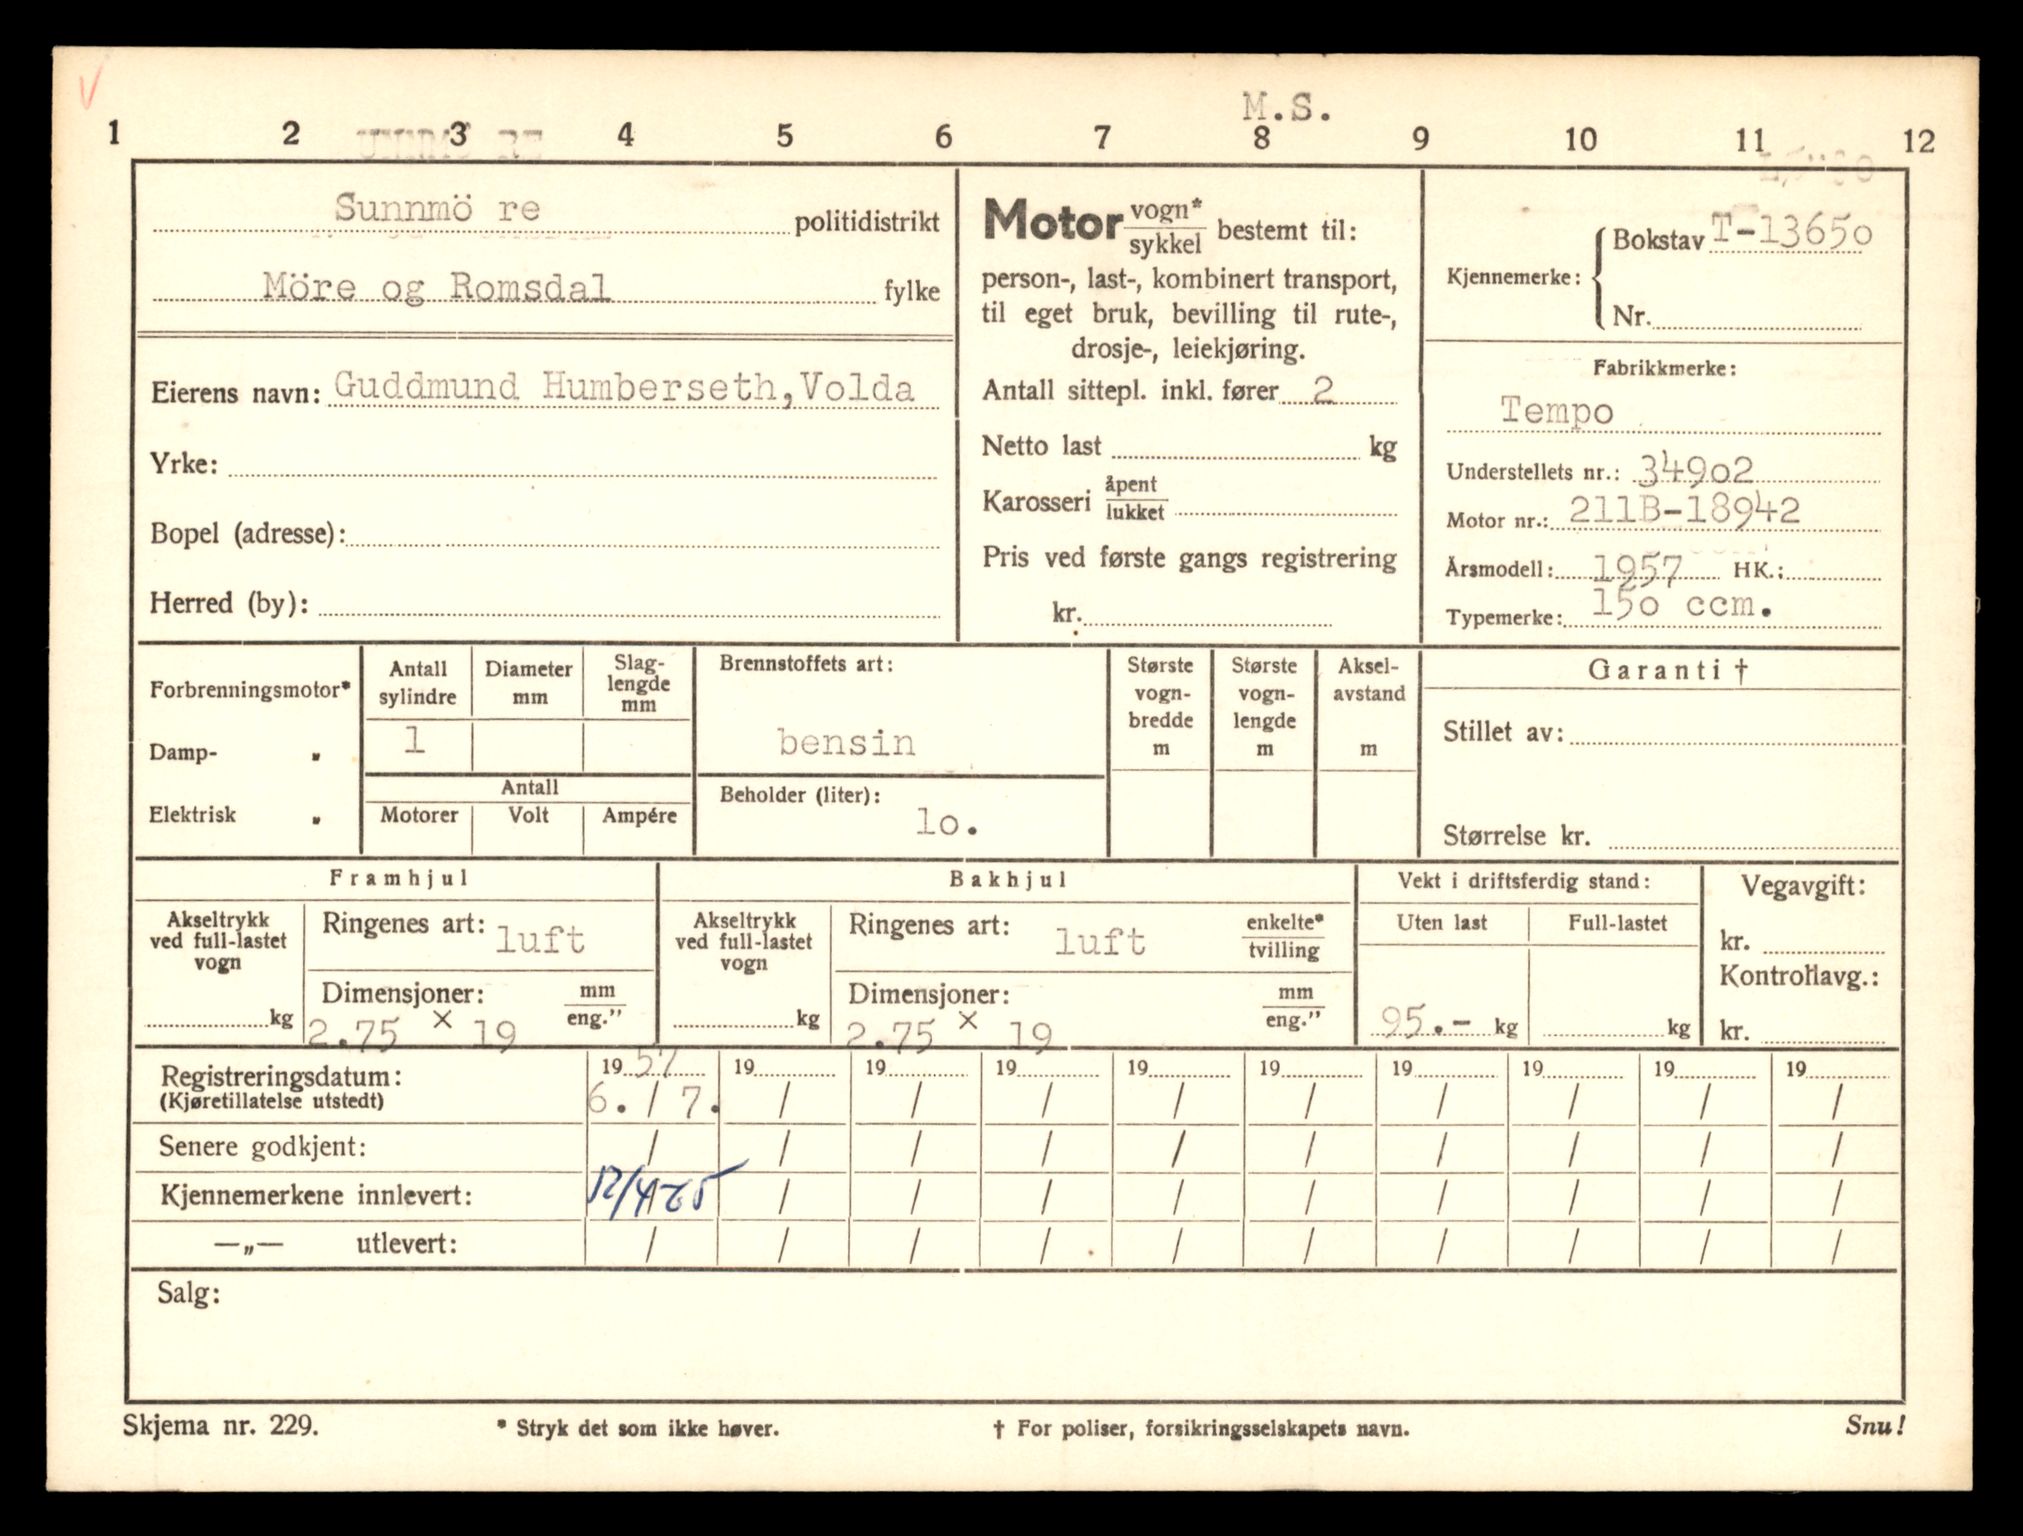 M.S.
1 2 3 4 5 6 7 8 9 10 11 12
Sunnmö re politidistrikt
Möre og Romsdal fylke
Eierens navn: Guddmund Humberseth, Volda
Yrke:
Bopel (adresse):
Herred (by):
Motor vogn* / sykkel bestemt til:
person-, last-, kombinert transport,
til eget bruk, bevilling til rute-,
drosje-, leiekjøring.
Antall sittepl. inkl. fører 2
Netto last kg
Karosseri åpent / lukket
Pris ved første gangs registrering
kr.
Kjennemerke: Bokstav T-13650
Nr.
Fabrikkmerke:
Tempo
Understellets nr.: 34902
Motor nr.: 211B-18942
Årsmodell: 1957 HK.:
Typemerke: 150 ccm.
Forbrenningsmotor*
Damp- "
Elektrisk "
Antall sylindre
Diameter mm
Slag-lengde mm
1
Antall
Motorer Volt Ampére
Brennstoffets art:
bensin
Beholder (liter):
lo.
Største vogn-bredde m
Største vogn-lengde m
Aksel-avstand m
Garanti †
Stillet av:
Størrelse kr.
Framhjul
Akseltrykk ved full-lastet vogn
kg
Ringenes art: luft
Dimensjoner: mm / eng."
2.75 x 19
Bakhjul
Akseltrykk ved full-lastet vogn
kg
Ringenes art: luft enkelte* / tvilling
Dimensjoner: mm / eng."
2.75 x 19
Vekt i driftsferdig stand:
Uten last Full-lastet
95.- kg kg
Vegavgift:
kr.
Kontrollavg.:
kr.
Registreringsdatum: 19 57 19 19 19 19 19 19 19 19 19
(Kjøretillatelse utstedt) 6. / 7. / / / / / / / / /
Senere godkjent: / / / / / / / / / /
Kjennemerkene innlevert: / / / / / / / / /
—„— utlevert: / / / / / / / / / /
Salg:
Skjema nr. 229. * Stryk det som ikke høver. † For poliser, forsikringsselskapets navn. Snu!